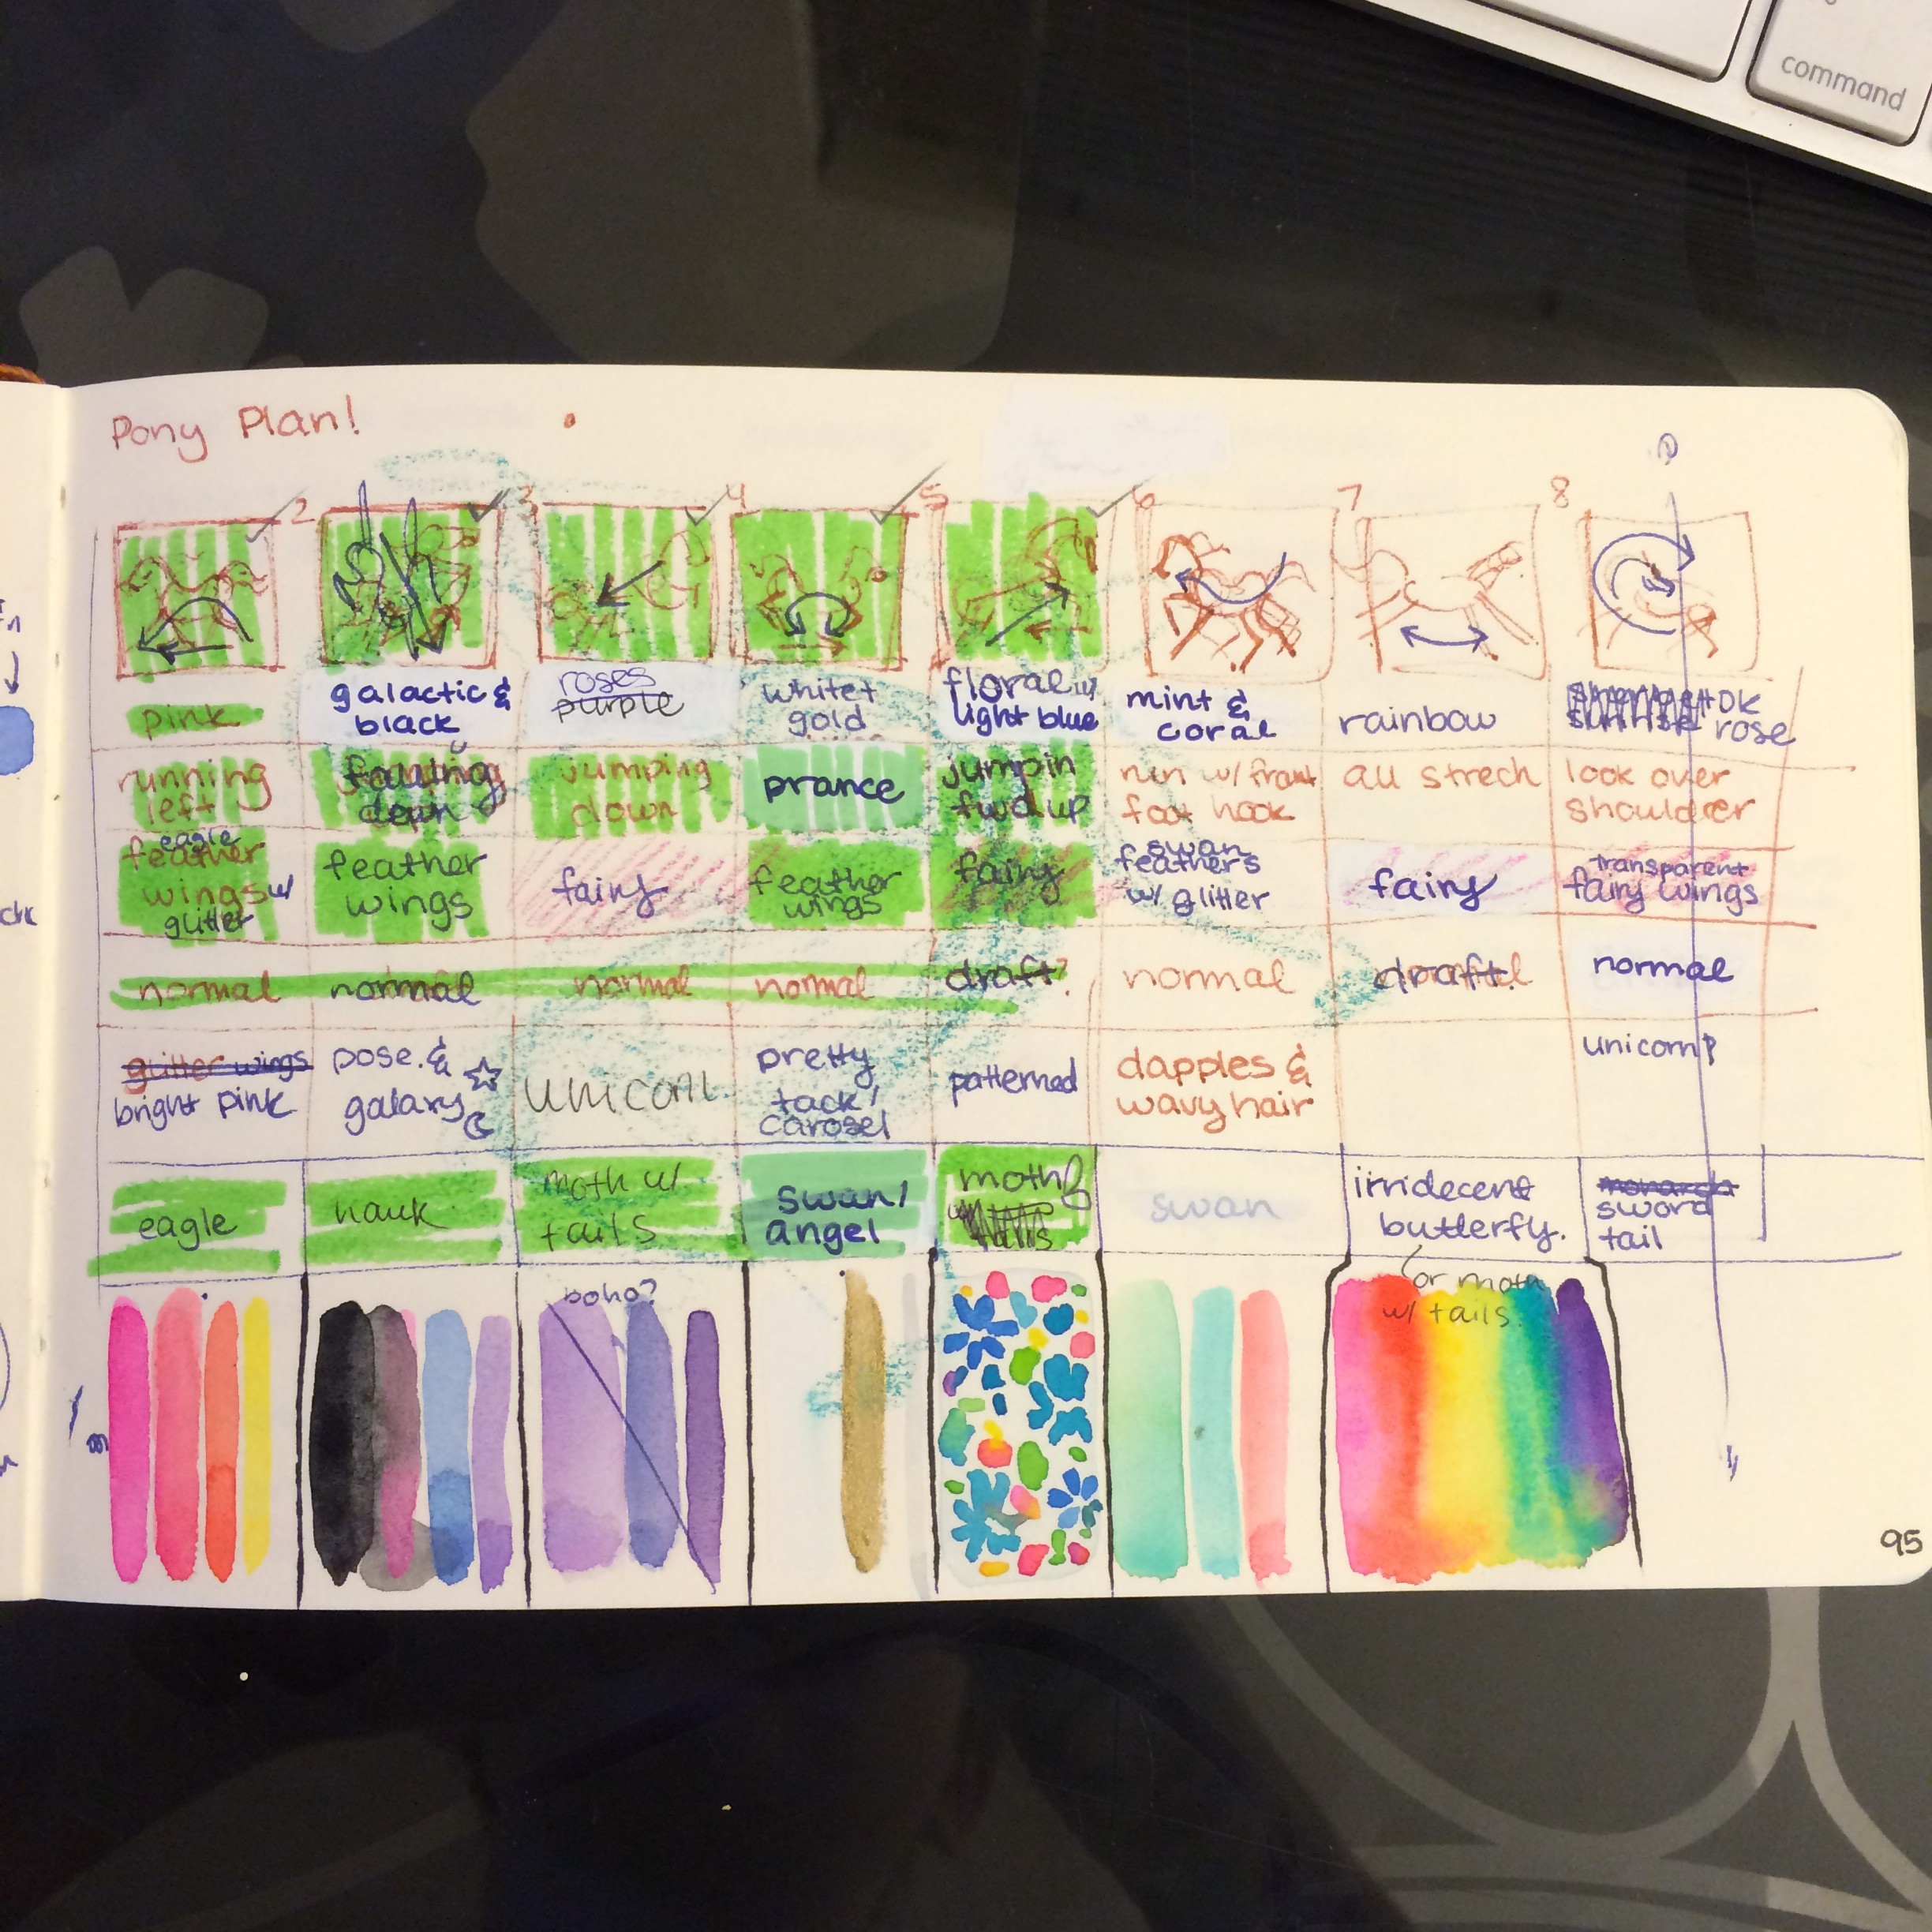 command
Pony Plan!
2
3
4
5
6
7
8
pink
galactic &
black
roses
purple
white +
gold
floral w/
light blue
mint &
coral
rainbow
DK
rose
running
left
falling
down
jumping
down
prance
jumpin
fwd up
run w/ front
foot hook
all strech
look over
shoulder
eagle
feather
wings w/
glitter
feather
wings
fairy
feather
wings
fairy
swan
feathers
w/ glitter
fairy
transparent
fairy wings
normal
normal
normal
normal
draft?
normal
draft
normal
glitter wings
bright pink
pose &
galaxy
unicorn
pretty
tack/
carosel
patterned
dapples &
wavy hair
unicorn?
eagle
hawk
moth w/
tails
swan/
angel
moth
tails
swan
irridecent
butterfly.
monarch
sword
tail
boho?
or moth
w/ tails.
95